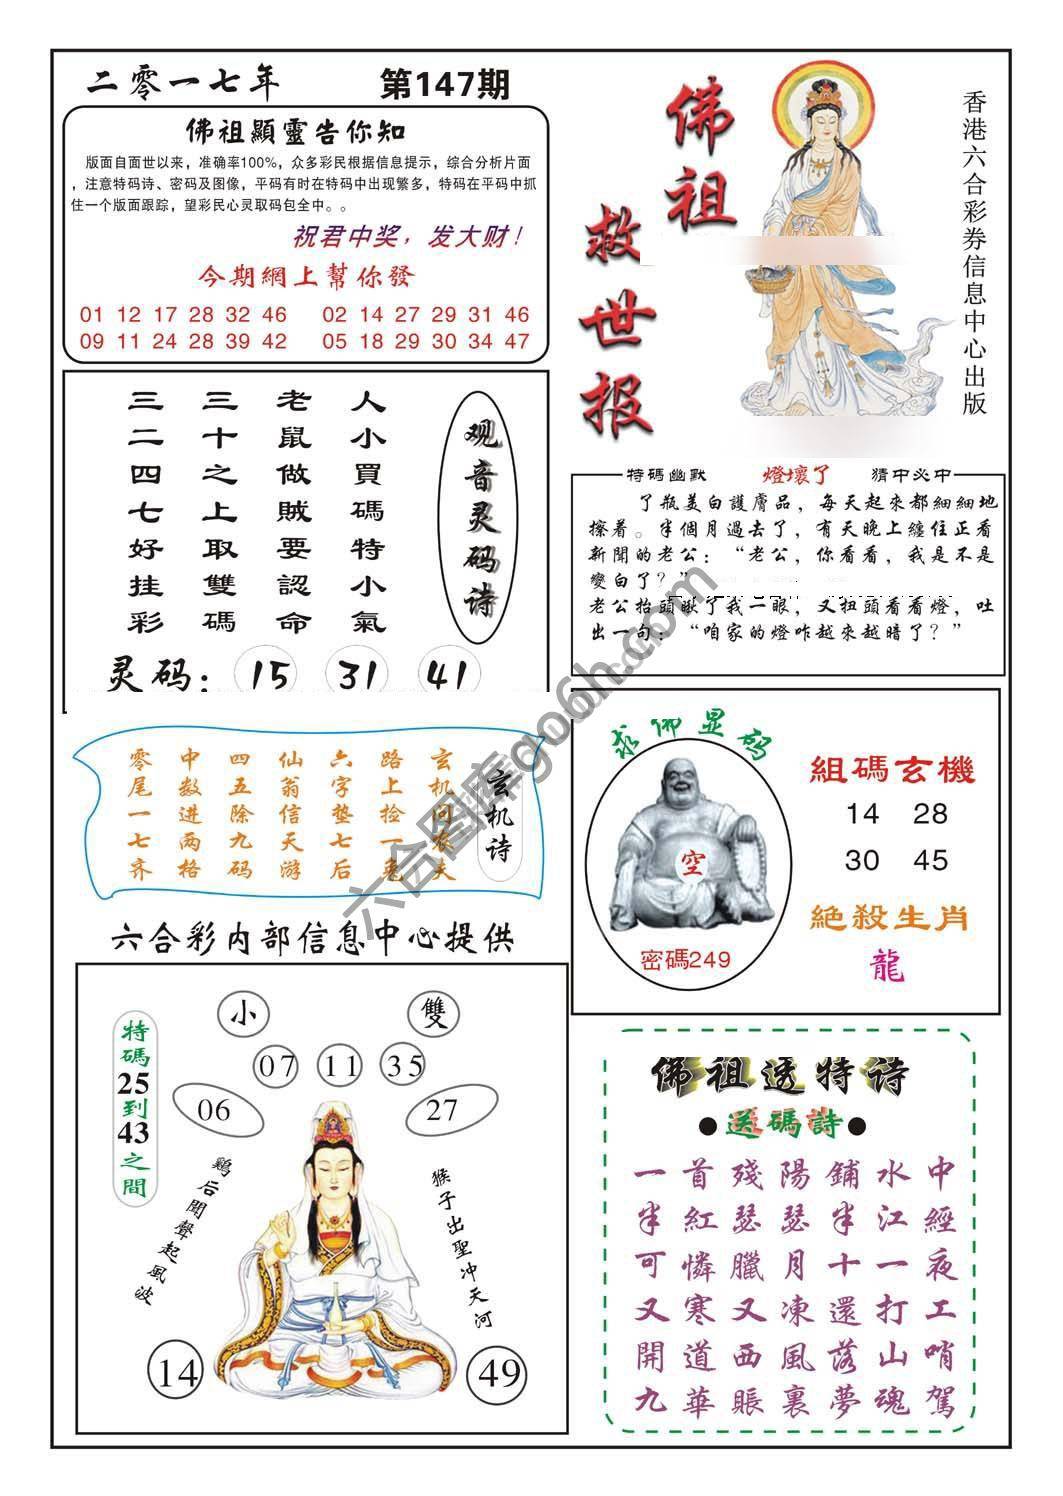 二零一七年
第147期
佛祖顯靈告你知
版面自面世以来，准确率100%，众多彩民根据信息提示，综合分析片面
，注意特码诗、密码及图像，平码有时在特码中出现繁多，特码在平码中抓
住一个版面跟踪，望彩民心灵取码包全中。。
祝君中奖，发大财！
今期網上幫你發
01 12 17 28 32 46
02 14 27 29 31 46
09 11 24 28 39 42
05 18 29 30 34 47
佛祖
救世报
香港六合彩券信息中心出版
观音灵码诗
人小買碼特小氣
老鼠做賊要認命
三十之上取雙碼
三二四七好挂彩
灵码：
15
31
41
特碼幽默
燈壞了
猜中必中
了瓶美白護膚品，每天起來都細細地
擦着。半個月過去了，有天晚上纏住正看
新聞的老公：“老公，你看看，我是不是
變白了？”
老公抬頭瞅了我一眼，又扭頭看看燈，吐
出一句：“咱家的燈咋越來越暗了？”
玄机诗
玄机问农夫
路上捡一兔
六字垫七后
仙翁信天游
四五除九码
中数进两格
零尾一七齐
六合彩内部信息中心提供
求佛显码
空
密碼249
組碼玄機
14 28
30 45
絕殺生肖
龍
特碼25到43之間
小
雙
07
11
35
06
27
鷄后聞聲起風波
猴子出聖冲天河
14
49
佛祖透特诗
●送碼詩●
一首殘陽鋪水中
半紅瑟瑟半江經
可憐臘月十一夜
又寒又凍還打工
開道西風落山哨
九華賬裏夢魂駕
六合图库go6h.com